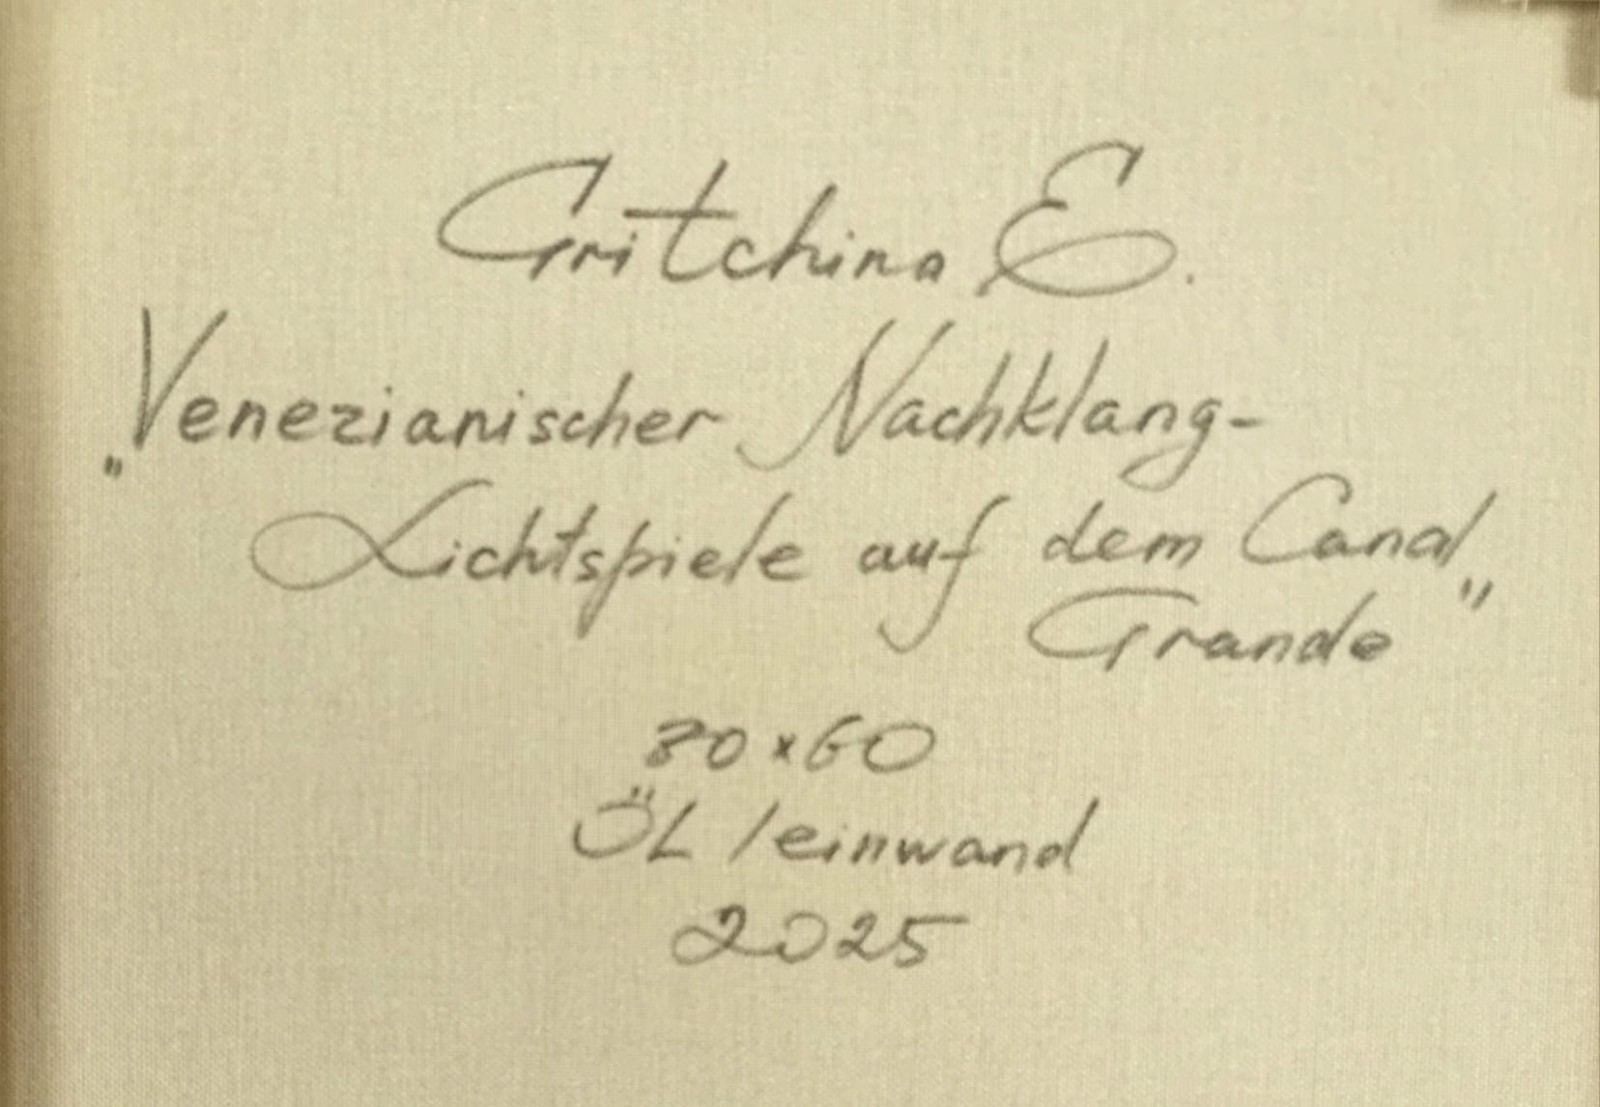 Gritchina E.
„Venezianischer Nachklang-
Lichtspiele auf dem Canal
Grande"
80×60
ÖL leinwand
2025